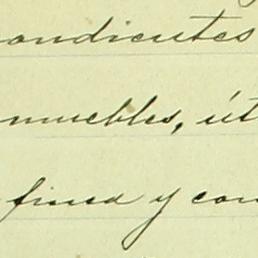 ondientes
muebles, út
finca y con